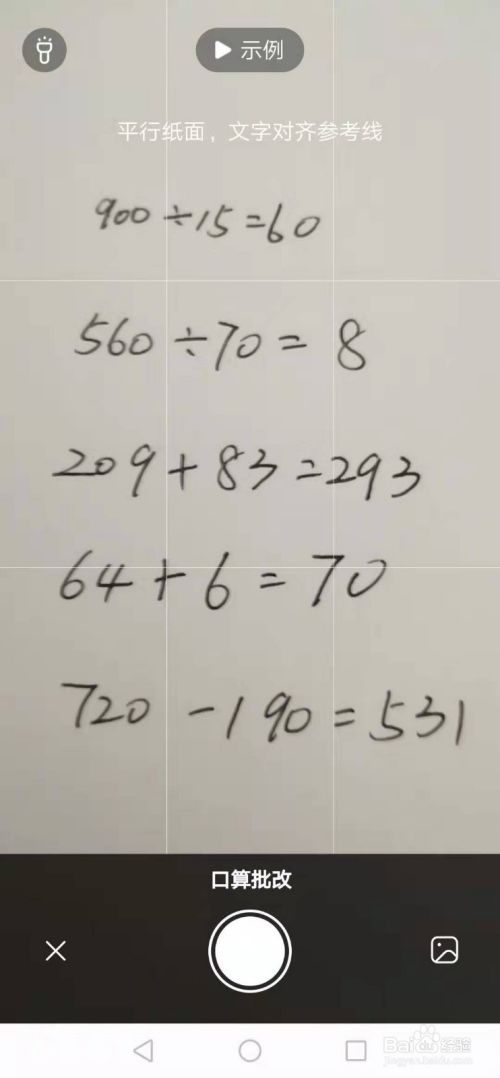 示例
平行纸面，文字对齐参考线
900÷15=60
560÷70=8
209+83=293
64+6=70
720-190=531
口算批改
Baidu经验
jingyan.baidu.com